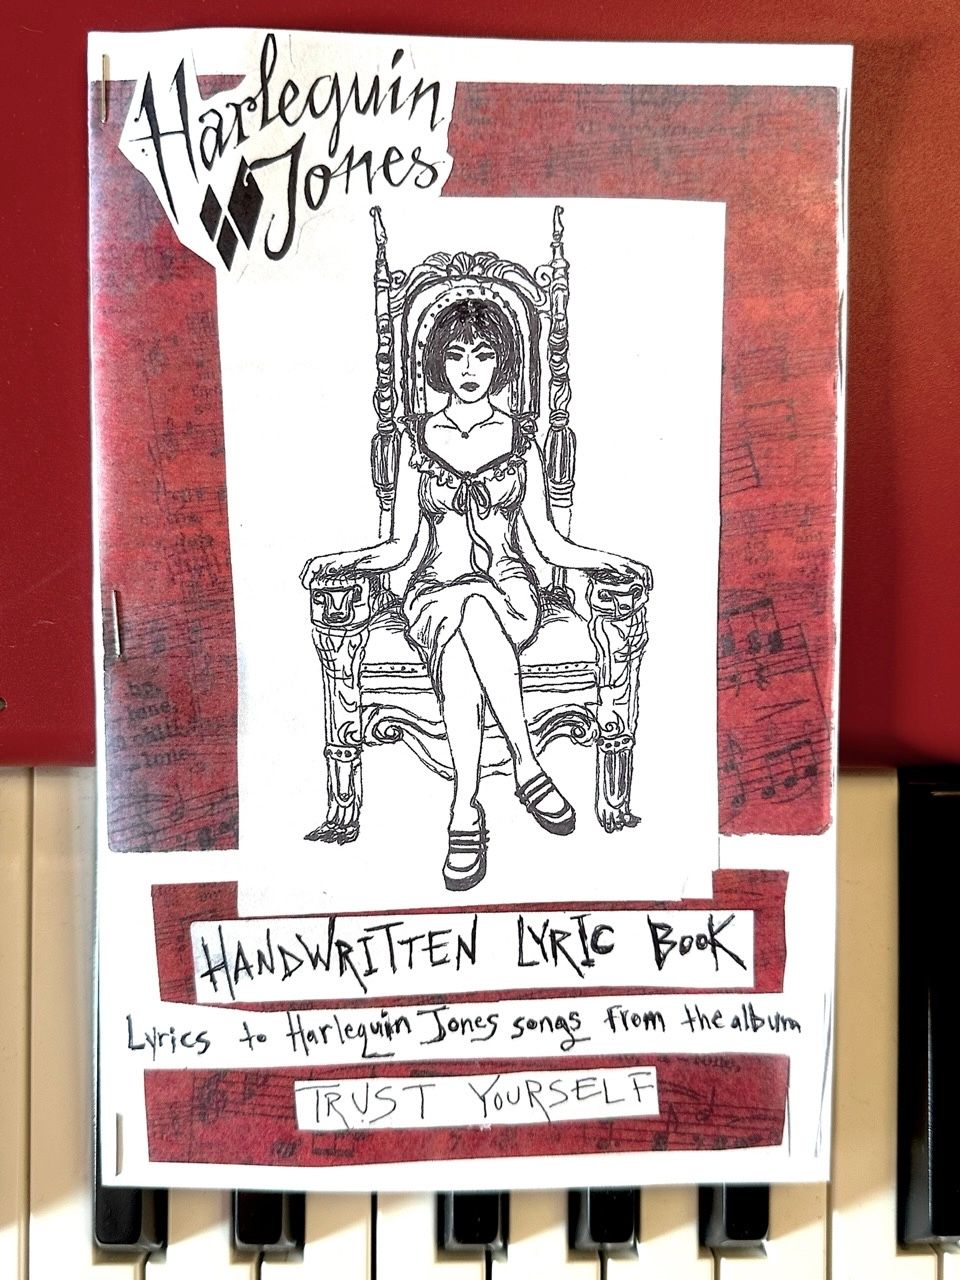 Harlequin
Jones
HANDWRITTEN LYRIC BOOK
Lyrics to Harlequin Jones songs from the album
TRUST YOURSELF